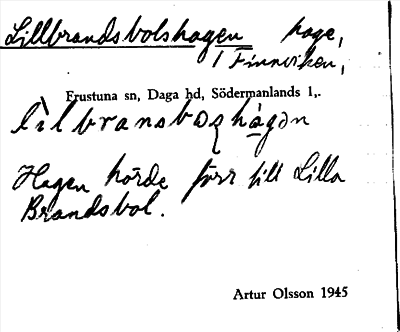 Lillbrandsbolshagen hage,
i Finnviken,
Frustuna sn, Daga hd, Södermanlands l,.
Hagen hörde förr till Lilla
Brandsbol.
Artur Olsson 1945